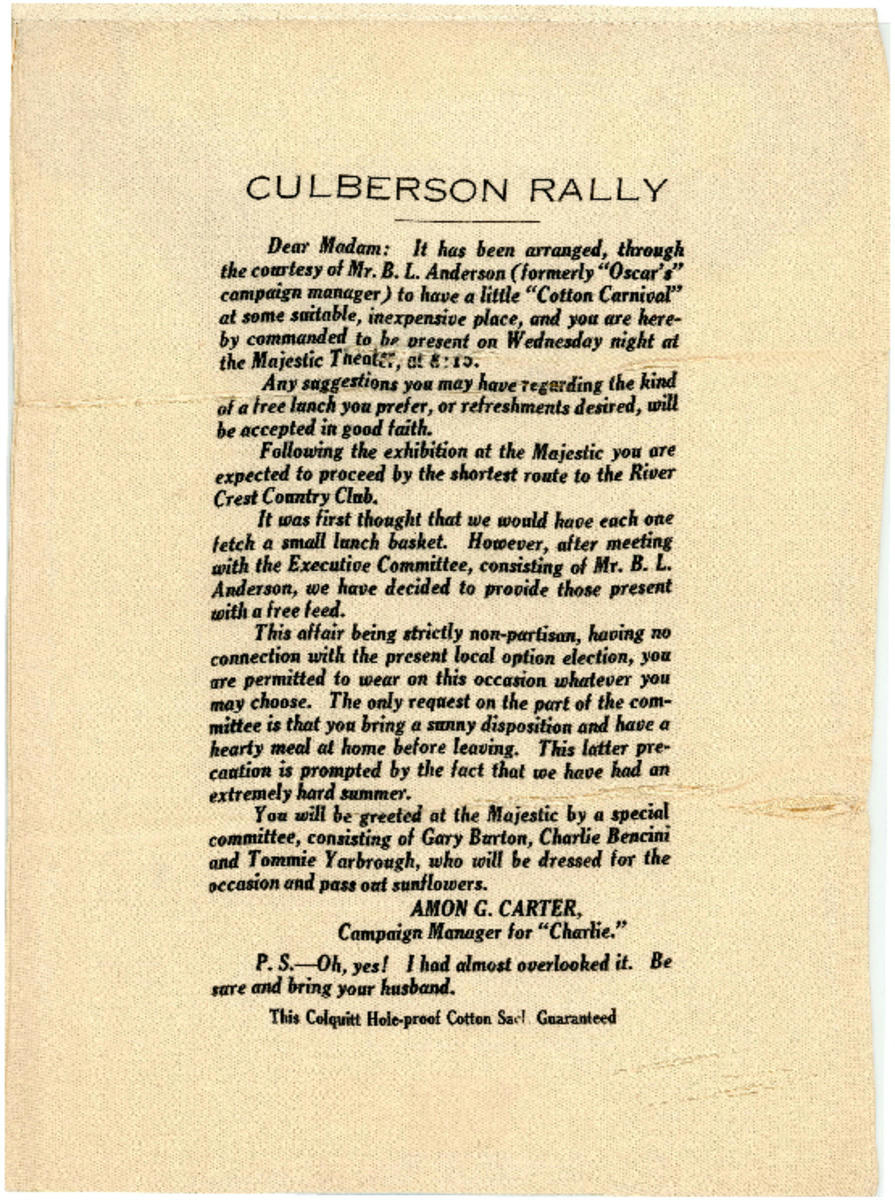 CULBERSON RALLY
Dear Madam: It has been arranged, through
the courtesy of Mr. B. L. Anderson (formerly "Oscar's"
campaign manager) to have a little "Cotton Carnival"
at some suitable, inexpensive place, and you are here-
by commanded to be present on Wednesday night at
the Majestic Theater, at 8:15.
Any suggestions you may have regarding the kind
of a free lunch you prefer, or refreshments desired, will
be accepted in good faith.
Following the exhibition at the Majestic you are
expected to proceed by the shortest route to the River
Crest Country Club.
It was first thought that we would have each one
fetch a small lunch basket. However, after meeting
with the Executive Committee, consisting of Mr. B. L.
Anderson, we have decided to provide those present
with a free feed.
This affair being strictly non-partisan, having no
connection with the present local option election, you
are permitted to wear on this occasion whatever you
may choose. The only request on the part of the com-
mittee is that you bring a sunny disposition and have a
hearty meal at home before leaving. This latter pre-
caution is prompted by the fact that we have had an
extremely hard summer.
You will be greeted at the Majestic by a special
committee, consisting of Gary Burton, Charlie Bencini
and Tommie Yarbrough, who will be dressed for the
occasion and pass out sunflowers.
AMON G. CARTER,
Campaign Manager for "Charlie."
P. S.—Oh, yes! I had almost overlooked it. Be
sure and bring your husband.
This Colquitt Hole-proof Cotton Sack Guaranteed